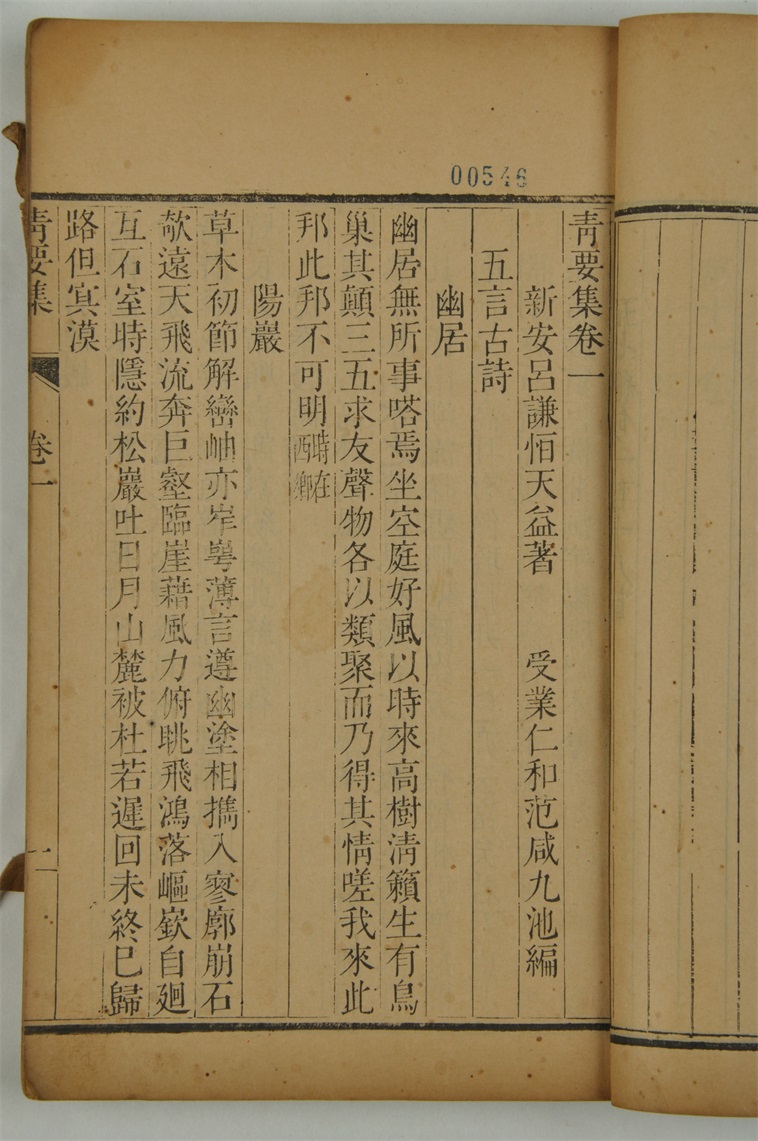 00546
青要集卷一
新安呂謙恒天益著　受業仁和范咸九池編
五言古詩
幽居
幽居無所事嗒焉坐空庭好風以時來高樹淸籟生有鳥
巢其顛三五求友聲物各以類聚而乃得其情嗟我來此
邦此邦不可明時在西鄉
陽巖
草木初節解巒岫亦岸崿薄言遵幽塗相攜入寥廓崩石
欹遠天飛流奔巨壑臨崖藉風力俯眺飛鴻落嶇嶔自廻
互石室時隱約松巖吐日月山麓被杜若遲回未終已歸
路但冥漠
青要集
卷一